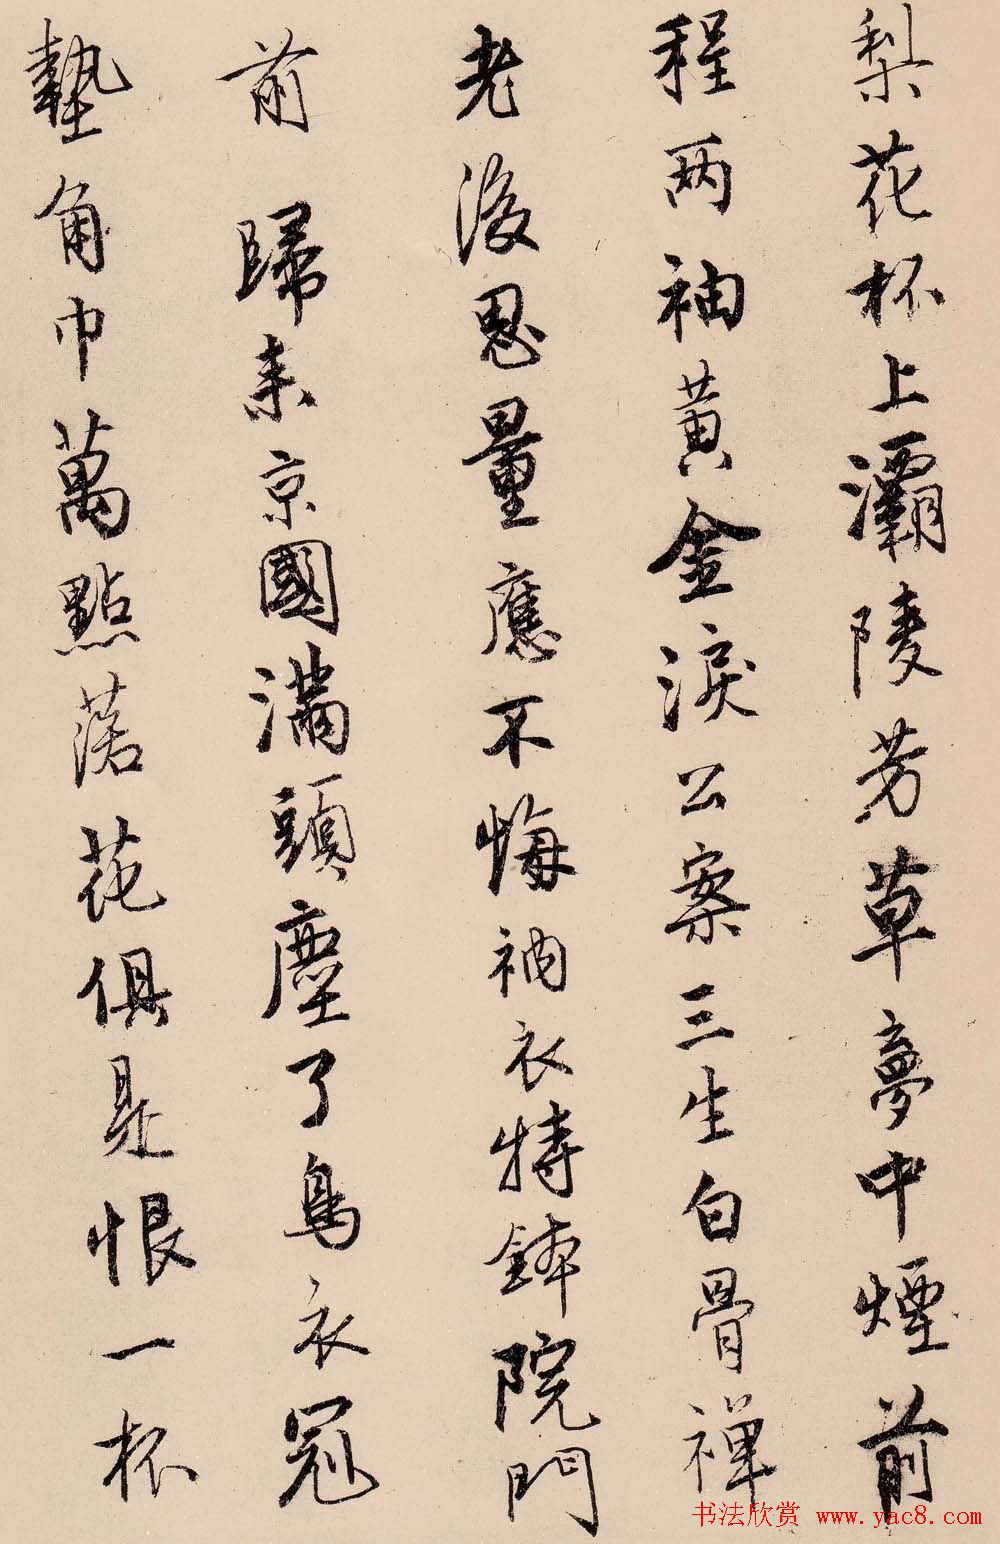 梨花杯上灞陵芳草夢中煙前
程两袖黄金淚公案三生白骨禅
老後思量應不悔衲衣持鉢院門
前 歸来京國滿頭塵了烏衣冠
墊角巾萬點落花俱是恨一杯
书法欣赏 www.yac8.com